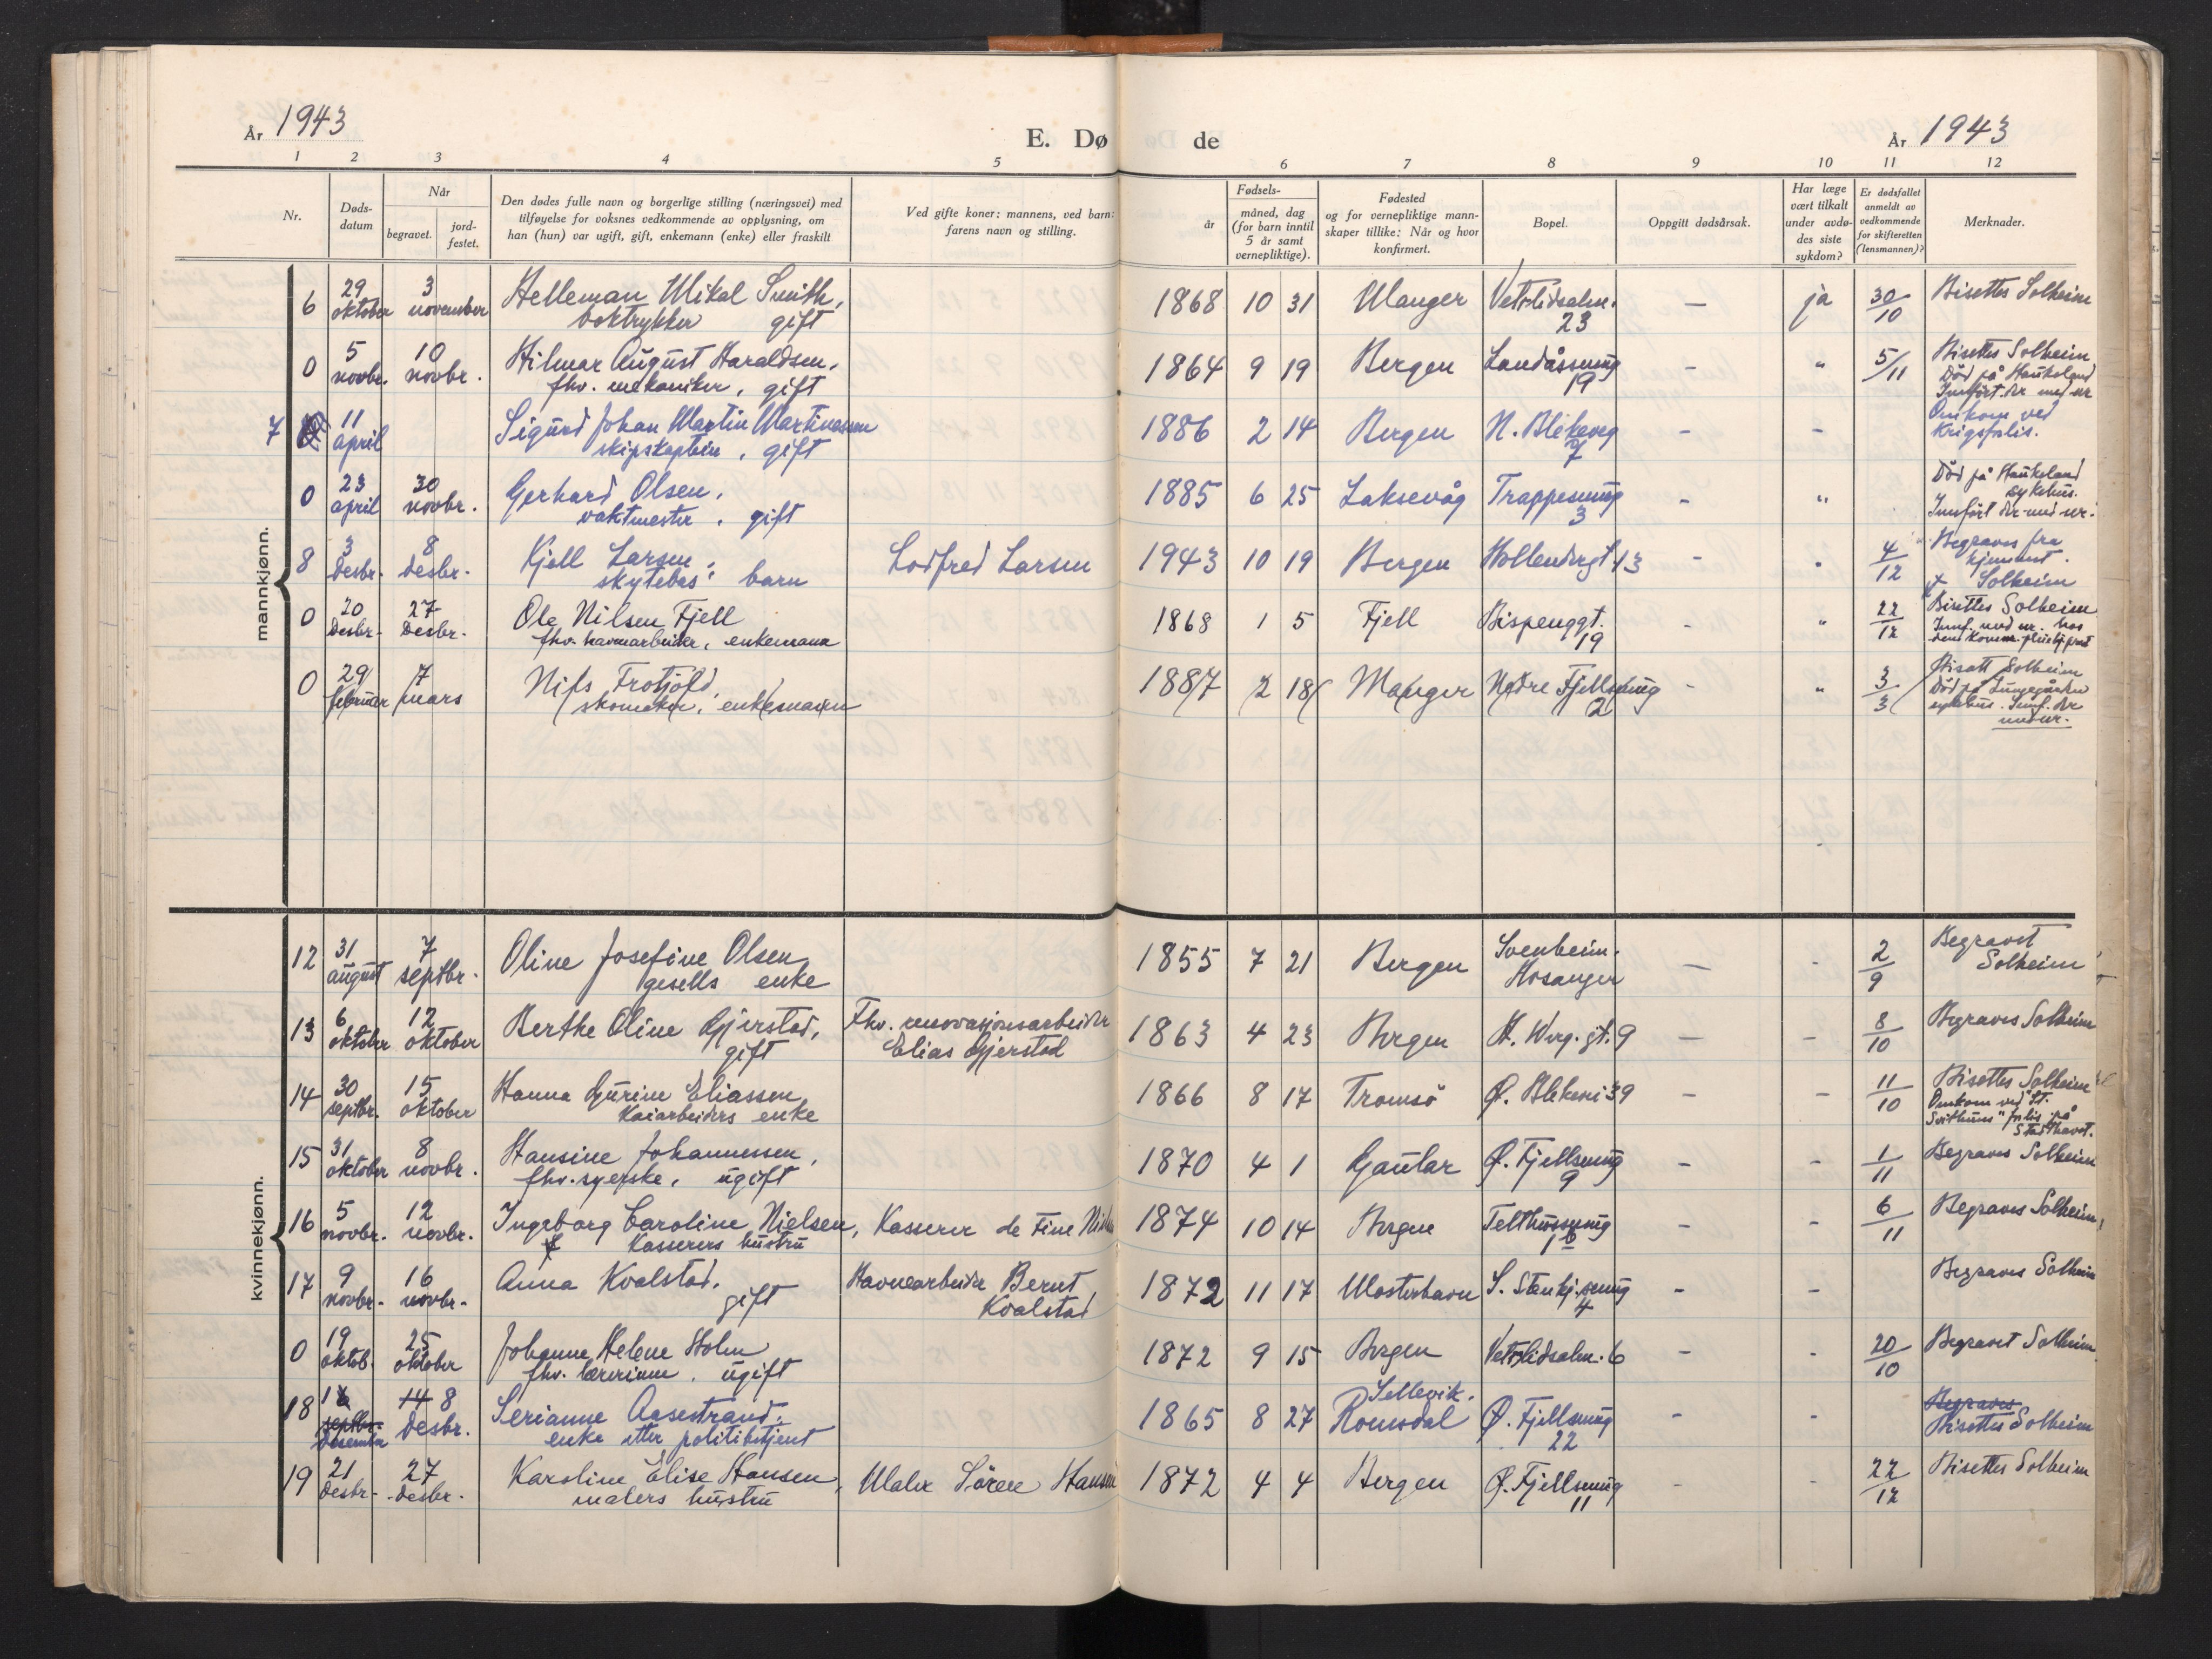 År 1943
E. Dø de
År 1943
1 2 3 4 5 6 7 8 9 10 11 12
Nr.
Døds-
datum
Når
begravet.
jord-
festet.
Den dødes fulle navn og borgerlige stilling (næringsvei) med
tilføyelse for voksnes vedkommende av opplysning, om
han (hun) var ugift, gift, enkemann (enke) eller fraskilt
Ved gifte koner: mannens, ved barn:
farens navn og stilling.
Fødsels-
år
måned, dag
(for barn inntil
5 år samt
vernepliktige).
Fødested
og for vernepliktige mann-
skaper tillike: Når og hvor
konfirmert.
Bopel.
Oppgitt dødsårsak.
Har læge
vært tilkalt
under avdø-
des siste
sykdom?
Er dødsfallet
anmeldt av
vedkommende
for skifteretten
(lensmannen)?
Merknader.
mannkjønn.
6 29 oktober 3 november Helleman Mikal Smith, 1868 10 31 Manger Vetrlidsalm. — ja 30/10 Bisettes Solheim
boktrykker gift 23
0 5 novbr. 10 novbr. Hilmar August Haraldsen, 1864 9 19 Bergen Landåssmug " 5/11 Bisettes Solheim
fhv. mekaniker, gift 19 Död på Haukeland
Innfört der med nr
7 11 april Sigurd Johan Martin Martinessen 1886 2 14 Bergen N. Blekeveg - - Omkom ved
skipskaptein, gift 7 krigsforlis.
0 23 april 30 novbr. Gerhard Olsen, 1885 6 25 Laksevåg Trappesmug - " Död på Haukeland
vaktmester, gift 3 sykehus.
Innfört der med nr.
8 3 desbr. 8 desbr. Kjell Larsen, Lodfred Larsen 1943 10 19 Bergen Hollendergt 13 - " 4/12 Begraves fra
skytebas' barn hjemmet.
x Solheim
0 20 desbr. 27 desbr. Ole Nilsen Fjell 1868 1 5 Fjell Bispenggt. - " 22/12 Bisettes Solheim
fhv. havnearbeider, enkemann 19 Innf. med nr. hos
0 29 februar 7 mars Nils Frotjold, 1887 2 18 Manger Nedre Fjellsmug - " 3/3 Bisatt Solheim
skomaker, enkemann 2 Död på Lungegården
sykehus. Innf. der
med nr.
kvinnekjønn.
12 31 august 7 septbr. Oline Josefine Olsen 1855 7 21 Bergen Soenheim. — - 2/9 Begravet
gesells enke Hosanger Solheim
13 6 oktober 12 oktober Berthe Oline Gjerstad, Fhv. renovasjonsarbeider 1863 4 23 Bergen H. Werg. gt. 9 — - 8/10 Begraves Solheim
gift Elias Gjerstad
14 30 septbr. 15 oktober Hanna Gurine Eliassen 1866 8 17 Tromsö Ø. Blekevei 39 - - 11/10 Bisettes Solheim
kaiarbeiders enke Omkom ved "St.
Svithuns" forlis på
Stadthavet.
15 31 oktober 8 novbr. Hansine Johannessen, 1870 4 1 Gaular Ø. Fjellsmug - - 1/11 Begraves Solheim
fhv. syerske, ugift 9
16 5 novbr. 12 novbr. Ingeborg Caroline Nielsen, Kasserer de Fine 1874 10 14 Bergen Telthussmug - - 6/11 Begraves Solheim
kasserers hustru 16
17 9 novbr. 16 novbr. Anna Kvalstad, Havnearbeider Bernt 1872 11 17 Mosterhavn S. Stenkj. smug - - Begraves Solheim
gift Kvalstad 4
0 19 oktob. 25 oktober Johanne Helene Holm 1872 9 15 Bergen Vetrlidsalm. 6 - - 20/10 Begravet Solheim
fhv. lærerinne, ugift
18 1 septbr. desember 14 8 desbr. Serianne Aasestrand, 1865 8 27 Sellevik. Romsdal Ø. Fjellsmug - - Begraves
enke etter politibetjent 22 Bisettes Solheim
19 21 desbr. 27 desbr. Karoline Elise Hansen, Maler Sören Hansen 1872 4 4 Bergen Ø. Fjellsmug - - 22/12 Bisettes Solheim
malers hustru 11